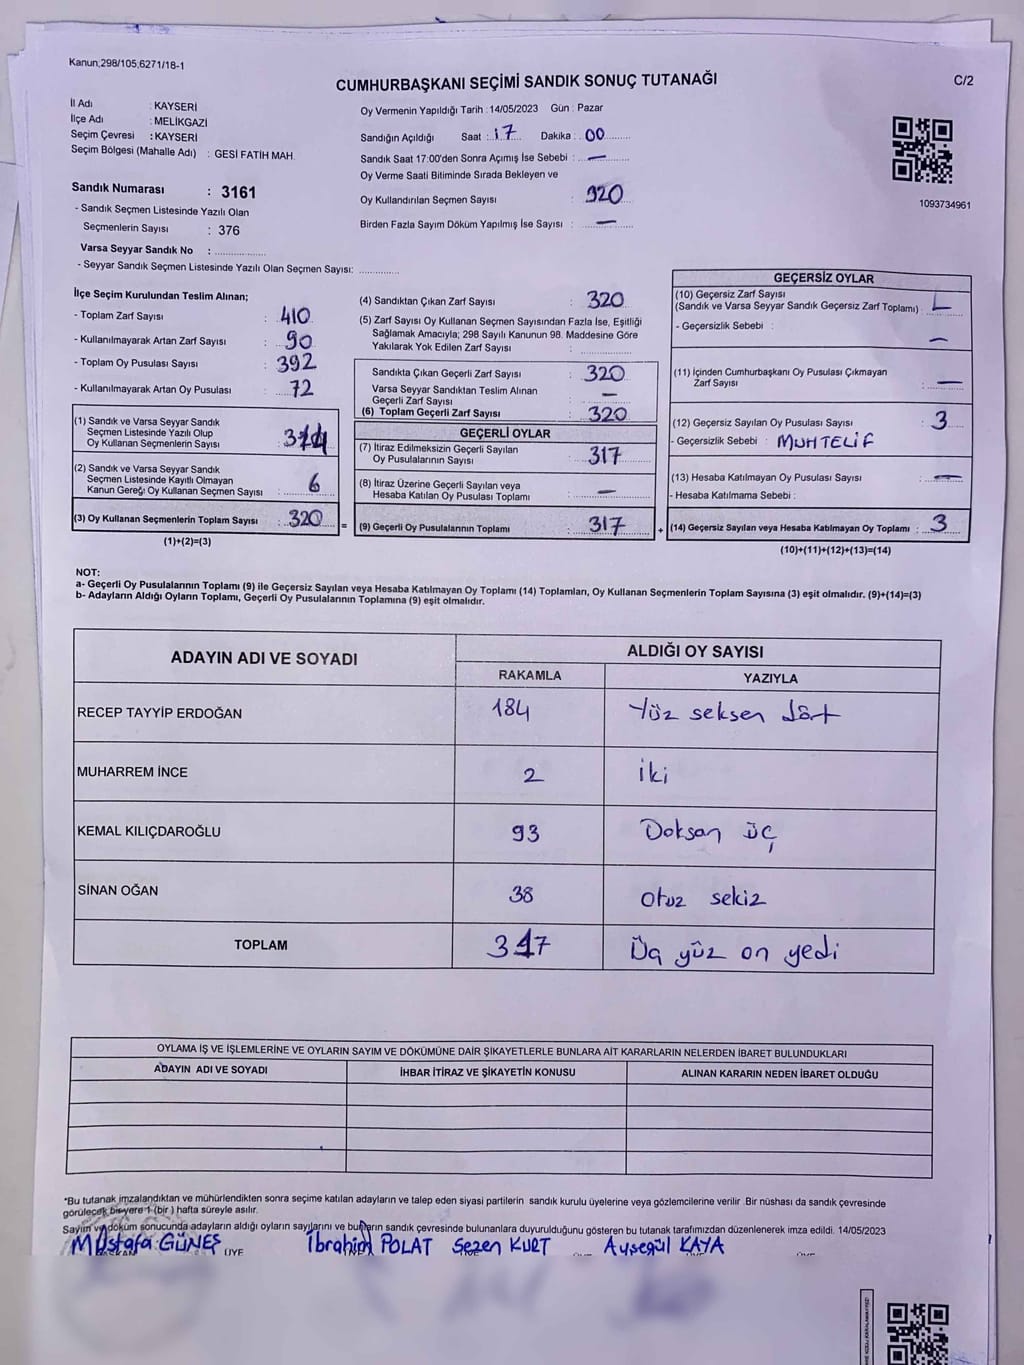 Kanun;298/105;6271/18-1
CUMHURBAŞKANI SEÇİMİ SANDIK SONUÇ TUTANAĞI
C/2
İl Adı : KAYSERİ
İlçe Adı : MELİKGAZİ
Seçim Çevresi : KAYSERİ
Seçim Bölgesi (Mahalle Adı) : GESİ FATİH MAH.
Oy Vermenin Yapıldığı Tarih : 14/05/2023 Gün : Pazar
Sandığın Açıldığı Saat : 17 Dakika : 00
Sandık Saat 17:00'den Sonra Açımış İse Sebebi : —
Oy Verme Saati Bitiminde Sırada Bekleyen ve
Oy Kullandırılan Seçmen Sayısı : 320
Birden Fazla Sayım Döküm Yapılmış İse Sayısı : —
1093734961
Sandık Numarası : 3161
- Sandık Seçmen Listesinde Yazılı Olan
Seçmenlerin Sayısı : 376
Varsa Seyyar Sandık No : ..................
- Seyyar Sandık Seçmen Listesinde Yazılı Olan Seçmen Sayısı: ..............
İlçe Seçim Kurulundan Teslim Alınan;
- Toplam Zarf Sayısı : 410
- Kullanılmayarak Artan Zarf Sayısı : 90
- Toplam Oy Pusulası Sayısı : 392
- Kullanılmayarak Artan Oy Pusulası : 72
(1) Sandık ve Varsa Seyyar Sandık
Seçmen Listesinde Yazılı Olup
Oy Kullanan Seçmenlerin Sayısı : 314
(2) Sandık ve Varsa Seyyar Sandık
Seçmen Listesinde Kayıtlı Olmayan
Kanun Gereği Oy Kullanan Seçmen Sayısı : 6
(3) Oy Kullanan Seçmenlerin Toplam Sayısı : 320
(1)+(2)=(3)
=
(4) Sandıktan Çıkan Zarf Sayısı : 320
(5) Zarf Sayısı Oy Kullanan Seçmen Sayısından Fazla İse, Eşitliği
Sağlamak Amacıyla; 298 Sayılı Kanunun 98. Maddesine Göre
Yakılarak Yok Edilen Zarf Sayısı :
Sandıkta Çıkan Geçerli Zarf Sayısı : 320
Varsa Seyyar Sandıktan Teslim Alınan
Geçerli Zarf Sayısı : —
(6) Toplam Geçerli Zarf Sayısı : 320
GEÇERLİ OYLAR
(7) İtiraz Edilmeksizin Geçerli Sayılan
Oy Pusulalarının Sayısı : 317
(8) İtiraz Üzerine Geçerli Sayılan veya
Hesaba Katılan Oy Pusulası Toplamı : —
(9) Geçerli Oy Pusulalarının Toplamı : 317
+
GEÇERSİZ OYLAR
(10) Geçersiz Zarf Sayısı
(Sandık ve Varsa Seyyar Sandık Geçersiz Zarf Toplamı) :
- Geçersizlik Sebebi : —
(11) İçinden Cumhurbaşkanı Oy Pusulası Çıkmayan
Zarf Sayısı : —
(12) Geçersiz Sayılan Oy Pusulası Sayısı : 3
- Geçersizlik Sebebi : MUHTELİF
(13) Hesaba Katılmayan Oy Pusulası Sayısı : —
- Hesaba Katılmama Sebebi :
(14) Geçersiz Sayılan veya Hesaba Katılmayan Oy Toplamı : 3
(10)+(11)+(12)+(13)=(14)
NOT:
a- Geçerli Oy Pusulalarının Toplamı (9) ile Geçersiz Sayılan veya Hesaba Katılmayan Oy Toplamı (14) Toplamları, Oy Kullanan Seçmenlerin Toplam Sayısına (3) eşit olmalıdır. (9)+(14)=(3)
b- Adayların Aldığı Oyların Toplamı, Geçerli Oy Pusulalarının Toplamına (9) eşit olmalıdır.
ADAYIN ADI VE SOYADI ALDIĞI OY SAYISI
RAKAMLA YAZIYLA
RECEP TAYYİP ERDOĞAN 184 Yüz seksen dört
MUHARREM İNCE 2 iki
KEMAL KILIÇDAROĞLU 93 Doksan üç
SİNAN OĞAN 38 otuz sekiz
TOPLAM 317 Üç yüz on yedi
OYLAMA İŞ VE İŞLEMLERİNE VE OYLARIN SAYIM VE DÖKÜMÜNE DAİR ŞİKAYETLERLE BUNLARA AİT KARARLARIN NELERDEN İBARET BULUNDUKLARI
ADAYIN ADI VE SOYADI İHBAR İTİRAZ VE ŞİKAYETİN KONUSU ALINAN KARARIN NEDEN İBARET OLDUĞU
*Bu tutanak imzalandıktan ve mühürlendikten sonra seçime katılan adayların ve talep eden siyasi partilerin sandık kurulu üyelerine veya gözlemcilerine verilir .Bir nüshası da sandık çevresinde
görülecek bir yere 1 (bir ) hafta süreyle asılır.
Sayım ve döküm sonucunda adayların aldığı oyların sayılarını ve bunların sandık çevresinde bulunanlara duyurulduğunu gösteren bu tutanak tarafımızdan düzenlenerek imza edildi. 14/05/2023
Mustafa GÜNEŞ İbrahim POLAT Sezen KURT Ayşegül KAYA
BAŞKAN ÜYE